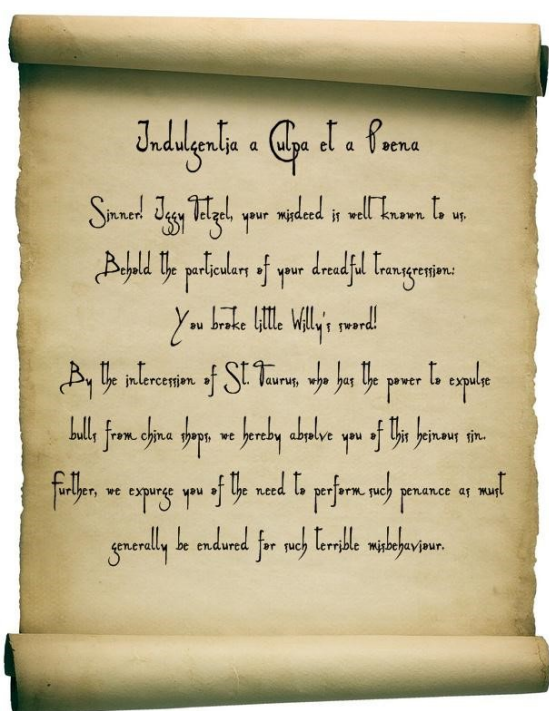 Indulgentia a Culpa et a Poena
Sinner! Iggy Tetzel, your misdeed is well known to us.
Behold the particulars of your dreadful transgression:
You broke little Willy's sword!
By the intercession of St. Taurus, who has the power to expulse
bulls from china shops, we hereby absolve you of this heinous sin.
Further, we expurge you of the need to perform such penance as must
generally be endured for such terrible misbehaviour.